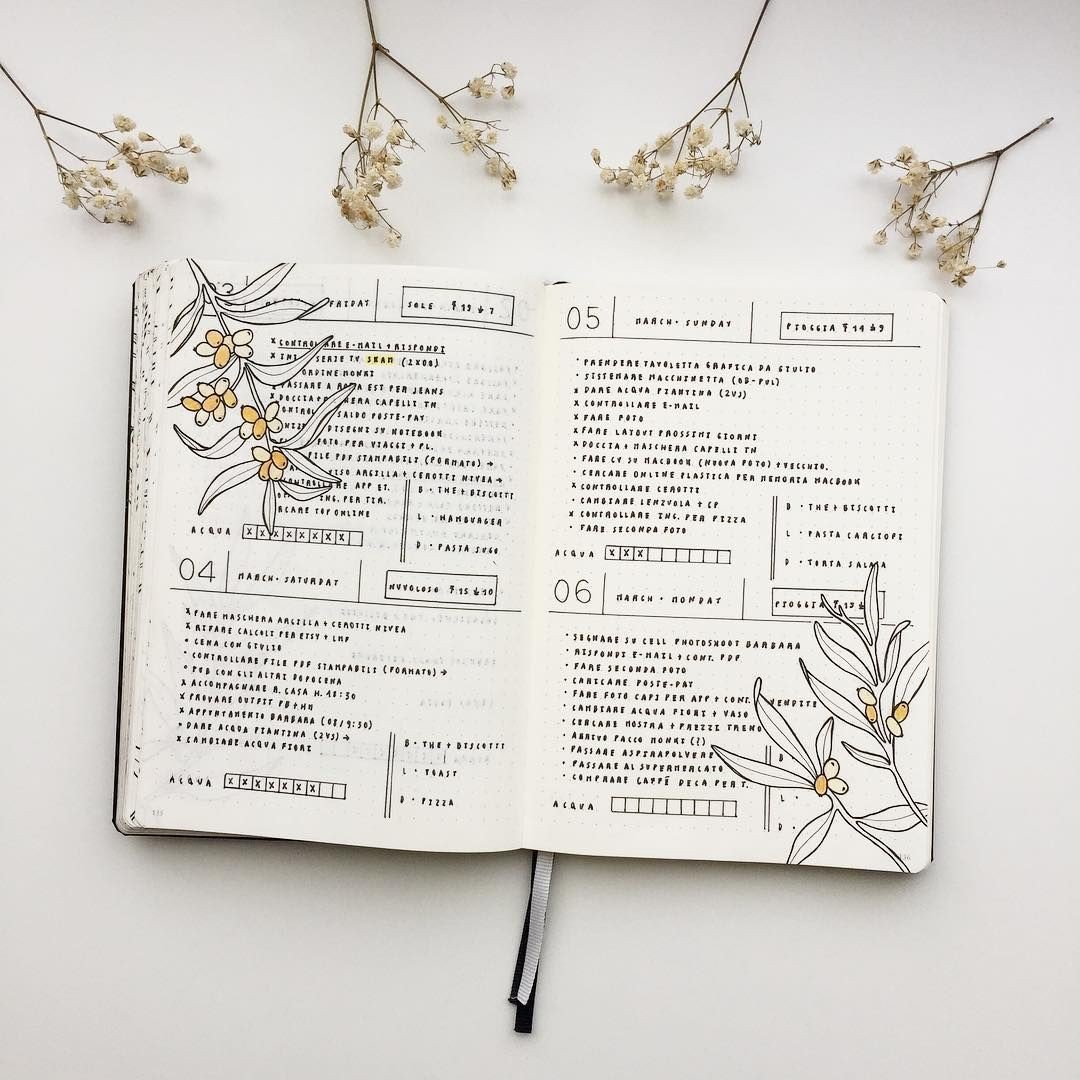 03
FRIDAY
SOLE 19 7
x CONTROLLARE E-MAIL + RISPONDI
SERIE TV SKAM (2X08)
ORDINE MONKI
PASSARE A EST PER JEANS
DOCCIA + MASCHERA CAPELLI TN
SALDO POSTE-PAY
DISEGNI SU NOTEBOOK
FOTO PER VIAGGI + PL.
FILE PDF STAMPABILI (FORMATO) →
VISO ARGILLA + CEROTTI NIVEA →
CONTROLLARE APP ET.
ING. PER TIR.
TOP ONLINE
B · THE + BISCOTTI
L · HAMBURGER
D · PASTA SUGO
ACQUA x x x x x x x x
04
MARCH · SATURDAY
NUVOLOSO 15 10
x FARE MASCHERA ARGILLA + CEROTTI NIVEA
x RIFARE CALCOLI PER ETSY + LMF
• CENA CON GIULIO
• CONTROLLARE FILE PDF STAMPABILI (FORMATO) →
• PUB CON GLI ALTRI DOPOCENA
x ACCOMPAGNARE A CASA H. 18:30
x PROVARE OUTFIT PB + HM
x APPUNTAMENTO BARBARA (08/9:30)
• DARE ACQUA PIANTINA (2VS) →
x CAMBIARE ACQUA FIORI
B · THE + BISCOTTI
L · TOAST
D · PIZZA
ACQUA x x x x x x x
135
05
MARCH · SUNDAY
PIOGGIA 14 9
• PRENDERE TAVOLETTA GRAFICA DA GIULIO
• SISTEMARE MACCHINETTA (OB-PUL)
x DARE ACQUA PIANTINA (2VS)
x CONTROLLARE E-MAIL
x FARE FOTO
x FARE LAYOUT PROSSIMI GIORNI
x DOCCIA + MASCHERA CAPELLI TN
• FARE CV SU MACBOOK (NUOVA FOTO) + VECCHIO.
• CERCARE ONLINE PLASTICA PER MEMORIA MACBOOK
x CONTROLLARE CEROTTI
• CAMBIARE LENZUOLA + CP
x CONTROLLARE ING. PER PIZZA
• FARE SECONDA FOTO
B · THE + BISCOTTI
L · PASTA CARCIOFI
D · TORTA SALATA
ACQUA x x x
06
MARCH · MONDAY
PIOGGIA 13
• SEGNARE SU CELL PHOTOSHOOT BARBARA
• RISPONDI E-MAIL + CONT. PDF
• FARE SECONDA FOTO
• CARICARE POSTE-PAY
• FARE FOTO CAPI PER APP + CONT. VENDITE
• CAMBIARE ACQUA FIORI + VASO
• CERCARE MOSTRA + PREZZI TRENO
• ARRIVO PACCO MONKI (?)
• PASSARE ASPIRAPOLVERE
• PASSARE AL SUPERMERCATO
• COMPRARE CAFFÈ DECA PER T.
B
L ·
D ·
ACQUA
136